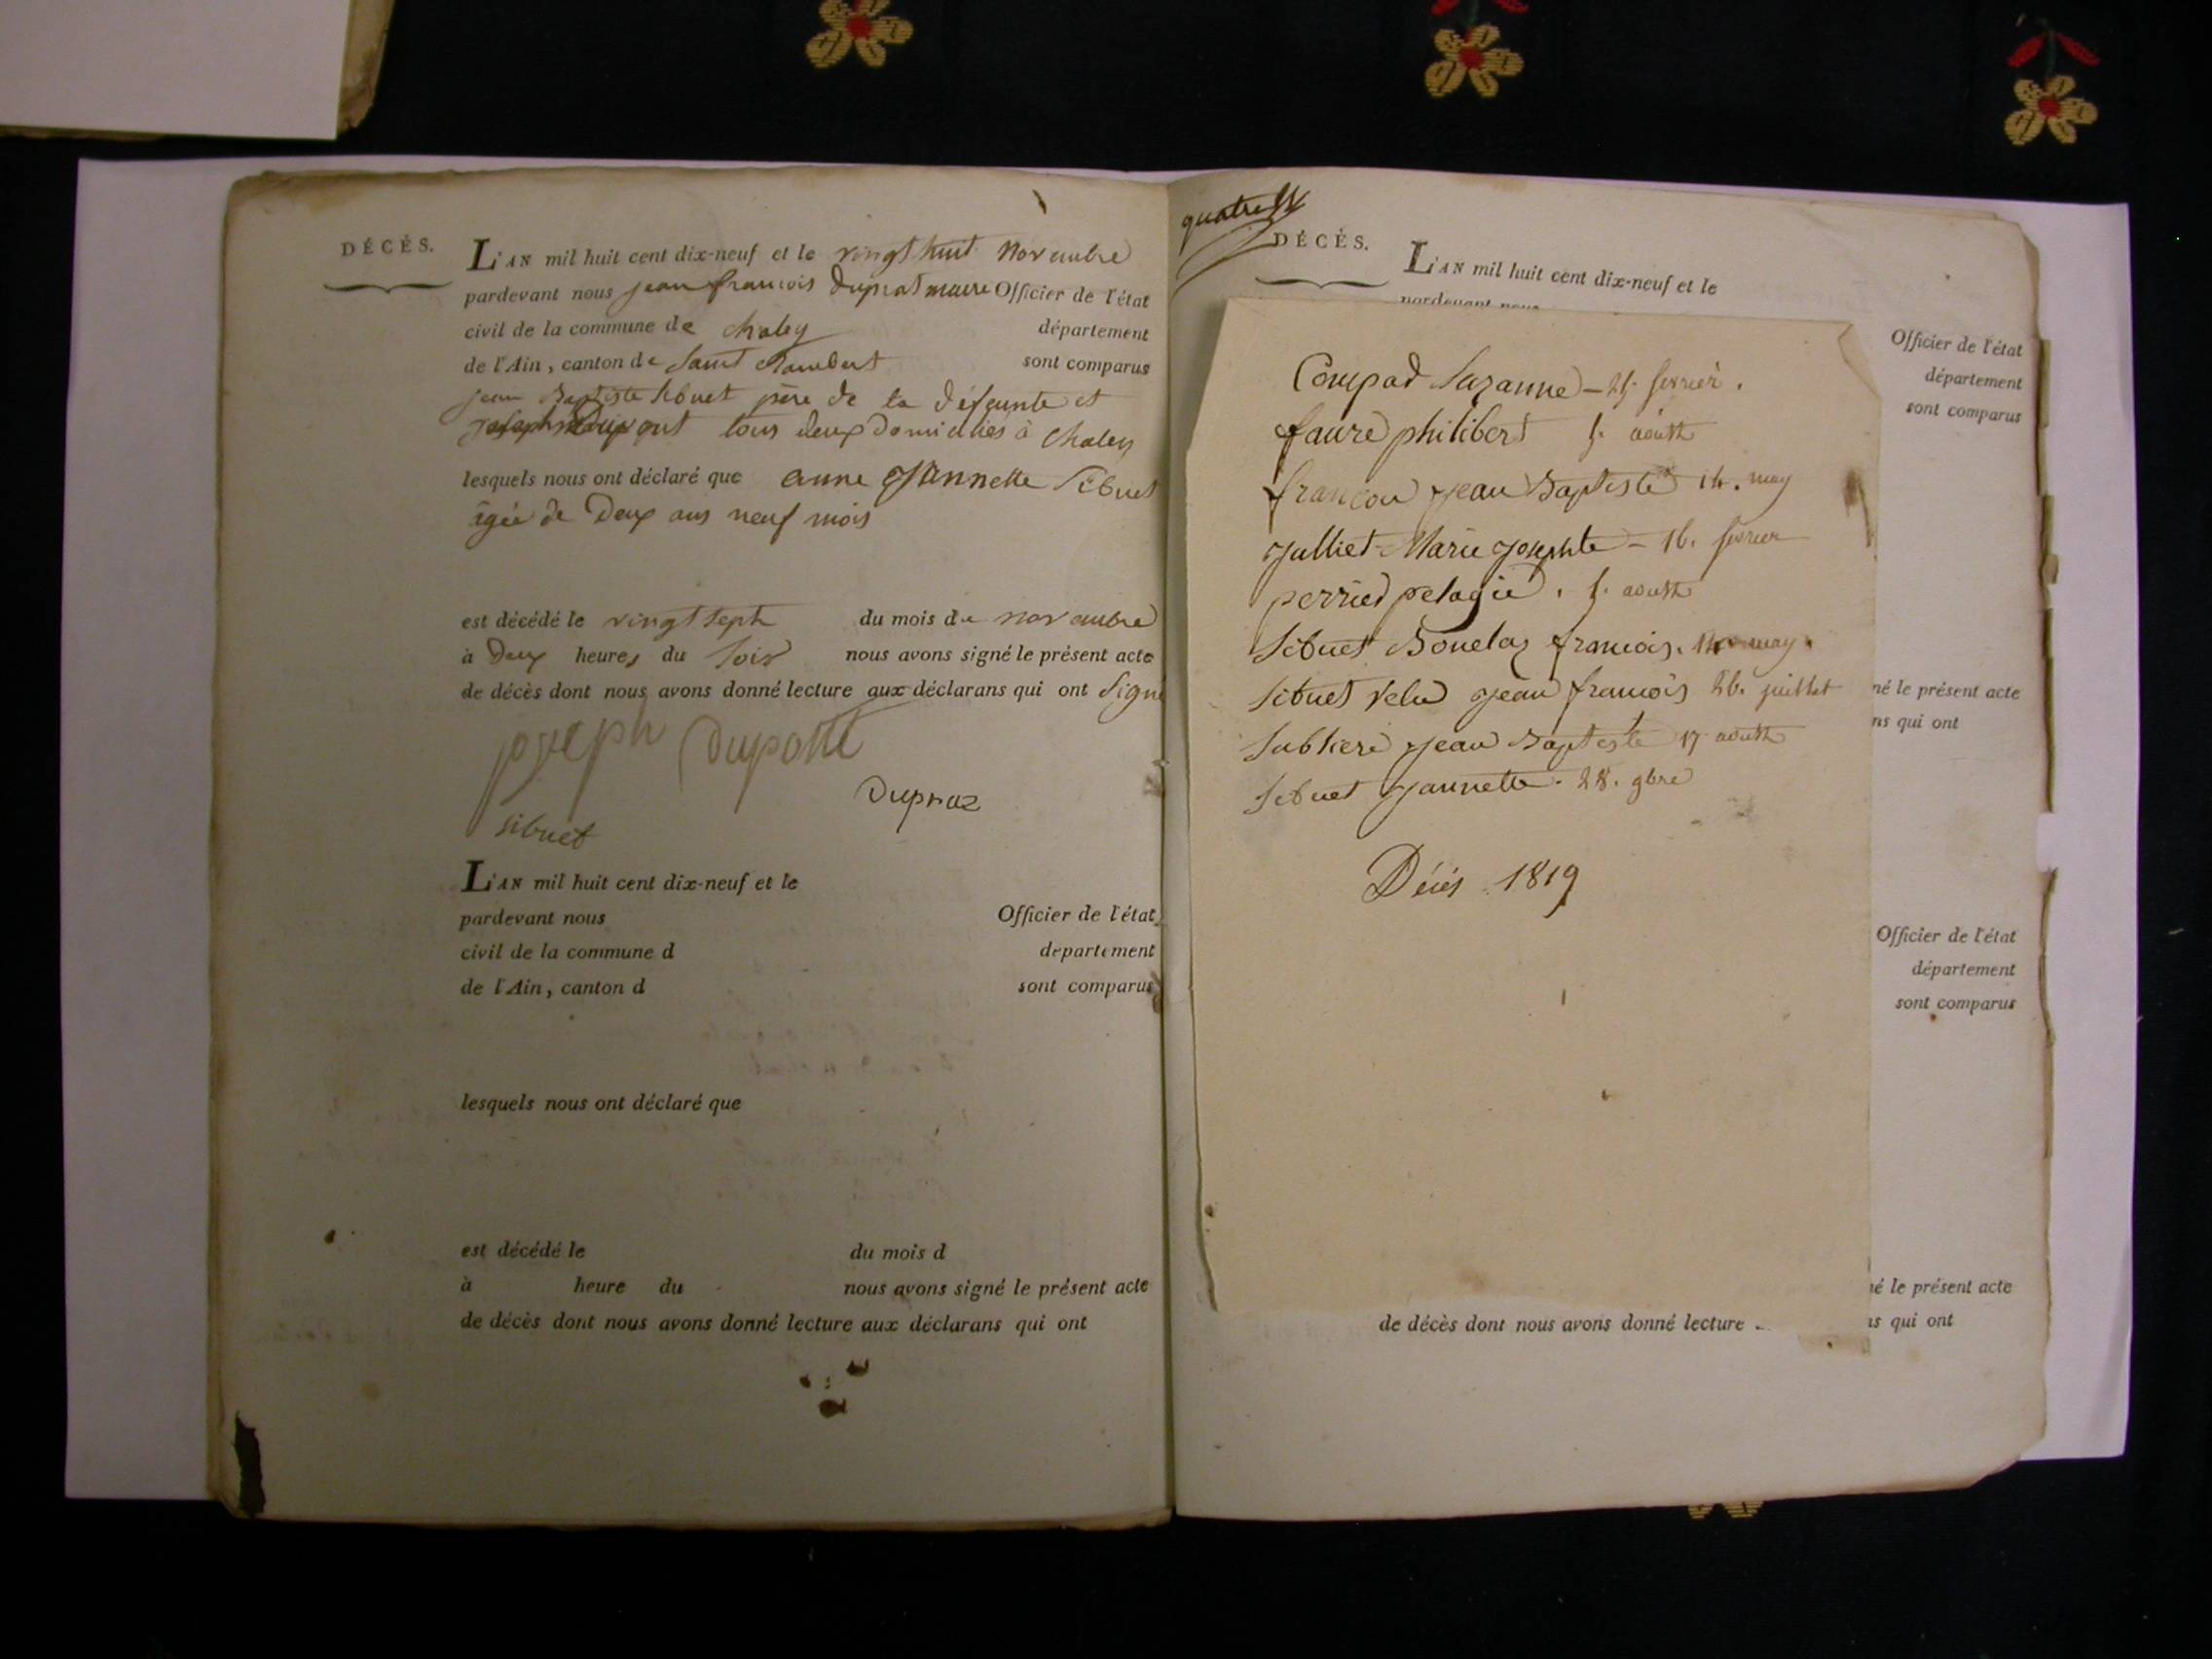 DÉCÈS.
L'AN mil huit cent dix-neuf et le vingt huit novembre
pardevant nous jean francois Dupraz maire Officier de l'état
civil de la commune de chaley département
de l'Ain, canton de Saint Rambert sont comparus
jean Baptiste sibuet père de la défunte et
joseph Dupont tous deux domiciliés à chaley
lesquels nous ont déclaré que anne jannette Sibuet
agée de deux ans neuf mois
est décédé le vingt sept du mois de novembre
à deux heures du soir nous avons signé le présent acte
de décès dont nous avons donné lecture aux déclarans qui ont signé
joseph Dupont
Dupraz
sibuet
L'AN mil huit cent dix-neuf et le
pardevant nous Officier de l'état
civil de la commune d département
de l'Ain, canton d sont comparus
lesquels nous ont déclaré que
est décédé le du mois d
à heure du nous avons signé le présent acte
de décès dont nous avons donné lecture aux déclarans qui ont
quatre
DÉCÈS.
L'AN mil huit cent dix-neuf et le
pardevant nous
Officier de l'état
département
sont comparus
Suzanne - février.
faure philibert aoust
francon jean Baptiste 14. may
julliet Marie josephte - 16. février
perried pelagie. aoust
Sibuet Bouelaz francois. 14 may.
Sibuet velu jean francois 26. juillet
Sublieré jean Baptiste 17 aoust
Sibuet jannette. 28. 9bre
Décés 1819
né le présent acte
ns qui ont
Officier de l'état
département
sont comparus
né le présent acte
de décès dont nous avons donné lecture
ns qui ont